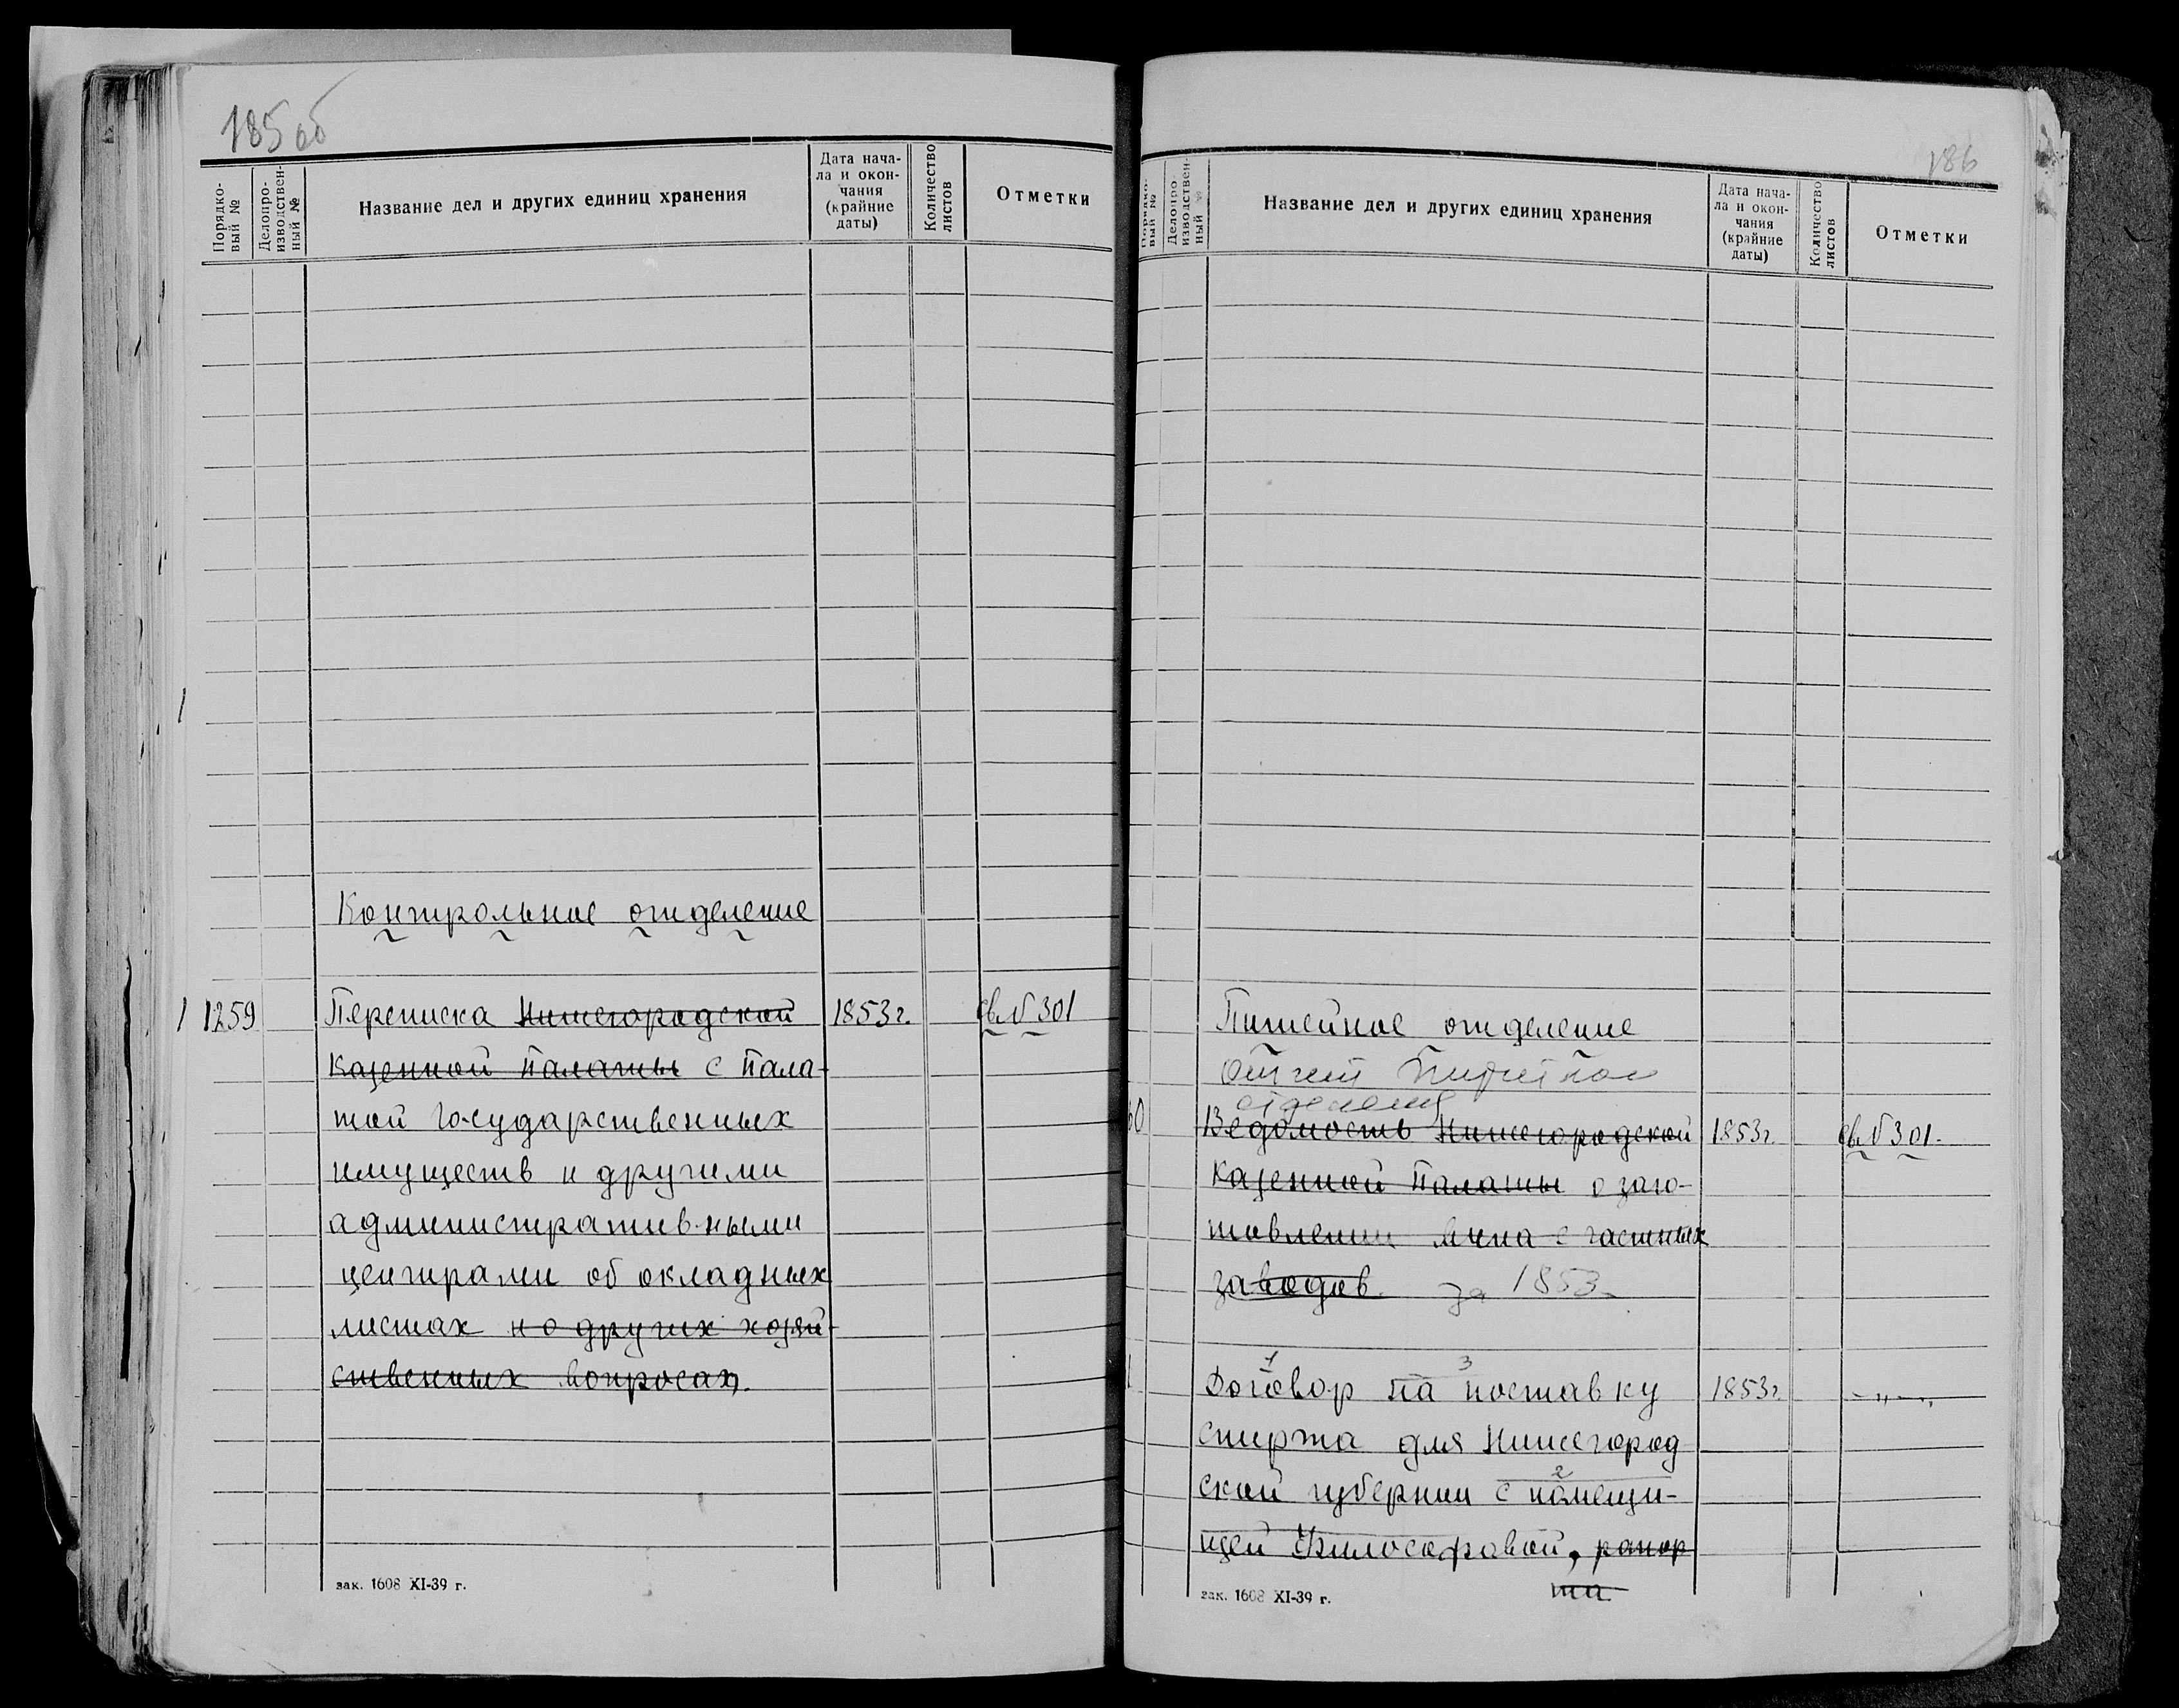 185 об
Порядко-
вый №
Делопро-
изводствен-
ный №
Название дел и других единиц хранения
Дата нача-
ла и окон-
чания
(крайние
даты)
Количество
листов
Отметки
Контрольное отделение
1 1259 Переписка Нижегородской 1853 г. св. № 301
Казенной Палаты с Пала-
той Государственных
имуществ и другими
административными
центрами об окладных
листах и о других хозяй-
ственных вопросах.
зак. 1608 XI-39 г.
186
Порядко-
вый №
Делопро-
изводствен-
ный №
Название дел и других единиц хранения
Дата нача-
ла и окон-
чания
(крайние
даты)
Количество
листов
Отметки
Питейное отделение
Отчет Питейного
отделения
60 Ведомость Нижегородской 1853 г. св. № 301.
Казенной Палаты о заго-
товлении вина с частных
заводов. за 1853
1 3
Договор на поставку 1853 г. -„-
спирта для Нижегород
2
ской губернии с помещи-
цей Философовой, рапор
та
зак. 1608 XI-39 г.